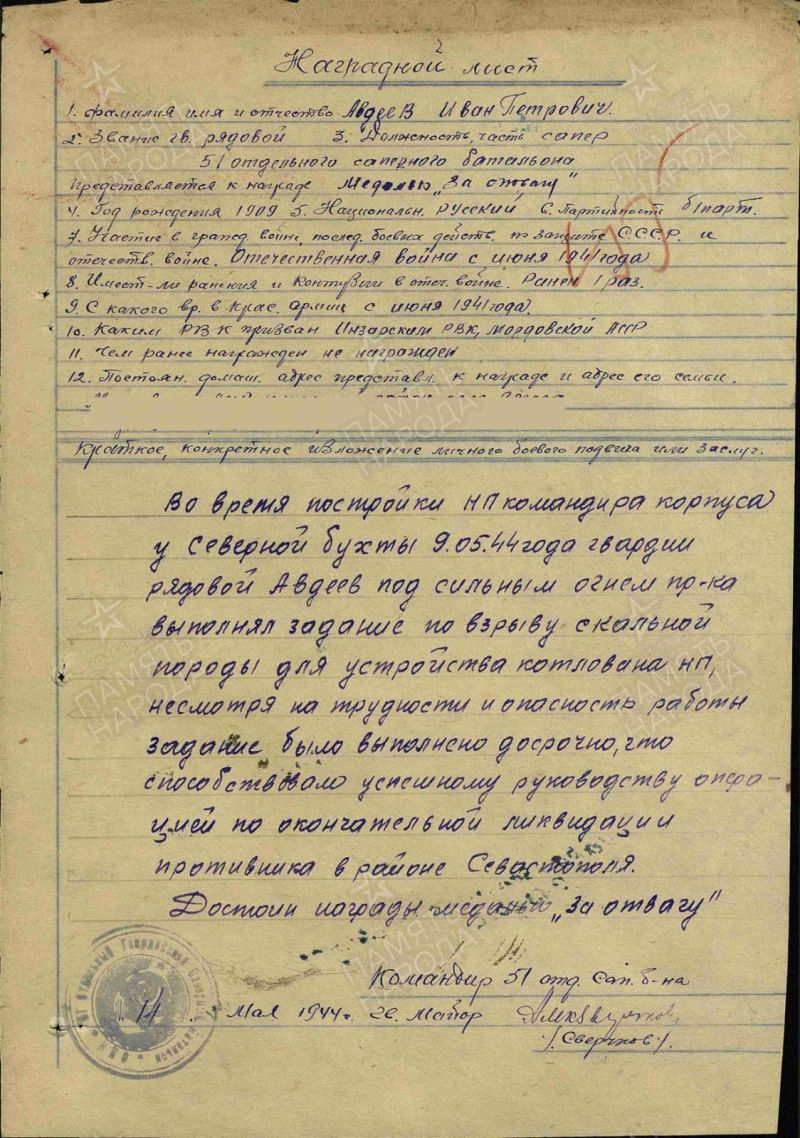 Наградной лист
1. Фамилия имя и отчество Авдеев Иван Петрович.
2. Звание гв. рядовой 3. Должность, часть сапер
51 отдельного саперного батальона
Представляется к награде Медалью "За отвагу"
4. Год рождения 1909 5. Национальн. Русский 6. Партийность б/парт.
7. Участие в гражд. войне, послед. боевых действ. по защите СССР. и
отечеств. войне. Отечественная война с июня 1941 года
8. Имеет-ли ранения и контузии в отеч. войне. Ранен 1 раз.
9. С какого вр. в Крас. армии с июня 1941 года.
10. Каким РВК призван Инзарским РВК, Мордовской АССР
11. Чем ранее награжден не награжден
12. Постоян. домаш. адрес представл. к награде и адрес его семьи.
Краткое, конкретное изложение личного боевого подвига или заслуг.
Во время постройки НП командира корпуса
у Северной бухты 9.05.44 года гвардии
рядовой Авдеев под сильным огнем пр-ка
выполнял задание по взрыву скальной
породы для устройства котлована НП,
несмотря на трудности и опасность работы
задание было выполнено досрочно, что
способствовало успешному руководству опера-
цией по окончательной ликвидации
противника в районе Севастополя.
Достоин награды медалью „За отвагу"
Командир 51 отд. сап. б-на
14 Мая 1944 г. гв. Майор
/Сверчков/.
ПАМЯТЬ НАРОДА